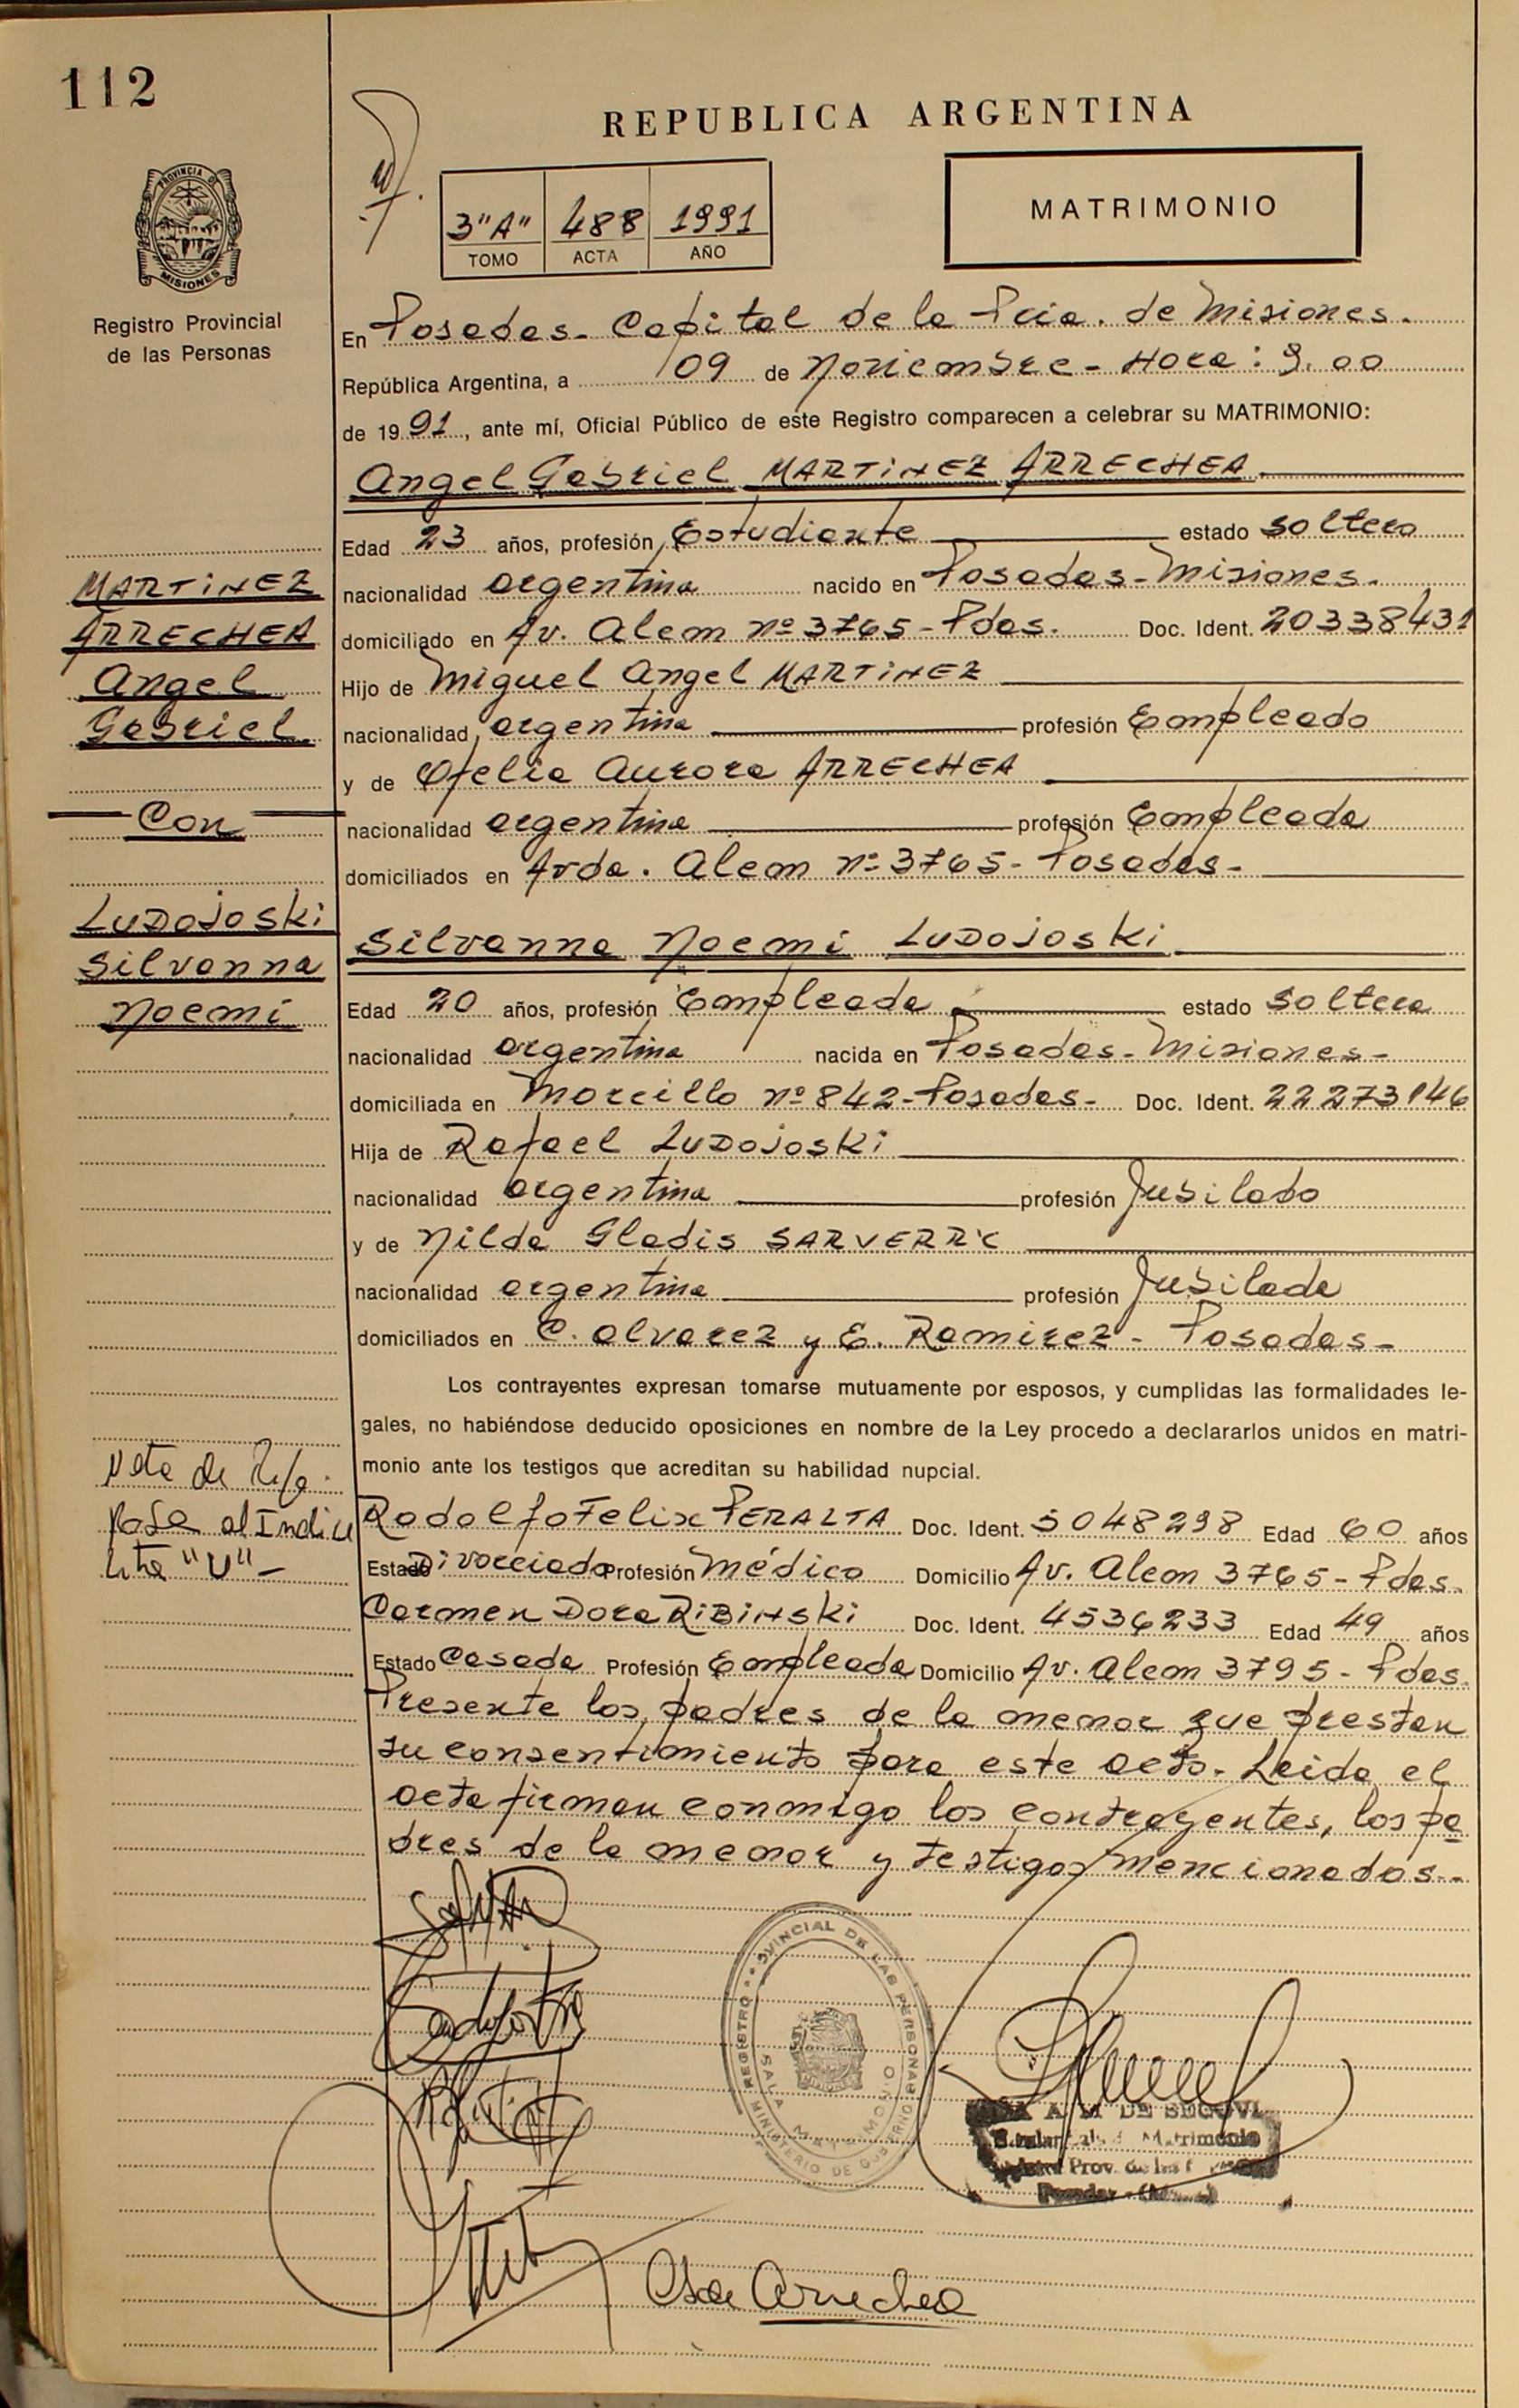 112
REPUBLICA ARGENTINA
PROVINCIA DE
MISIONES
Registro Provincial
de las Personas
3"A" 488 1991
TOMO ACTA AÑO
MATRIMONIO
En Posadas - Capital de la Pcia. de Misiones.
República Argentina, a 09 de Noviembre - Hora: 9.00
de 19 91, ante mí, Oficial Público de este Registro comparecen a celebrar su MATRIMONIO:
Angel Gabriel MARTINEZ ARRECHEA.
Edad 23 años, profesión Estudiante estado soltero
nacionalidad argentina nacido en Posadas - Misiones.
domiciliado en Av. Alem nº 3765 - Pdas. Doc. Ident. 20338431
Hijo de Miguel Angel MARTINEZ
nacionalidad argentina profesión Empleado
y de Ofelia Aurora ARRECHEA
nacionalidad argentina profesión Empleada
domiciliados en Avda. Alem nº 3765 - Posadas -
MARTINEZ
ARRECHEA
Angel
Gabriel
Con
LUDOJOSKI
Silvanna
Noemi
Silvanna Noemi LUDOJOSKI
Edad 20 años, profesión Empleada estado soltera
nacionalidad argentina nacida en Posadas - Misiones -
domiciliada en Morcillo nº 842 - Posadas - Doc. Ident. 22273146
Hija de Rafael LUDOJOSKI
nacionalidad argentina profesión Jubilado
y de Nilda Gladis
nacionalidad argentina profesión Jubilada
domiciliados en C. Alvarez y E. Ramirez - Posadas -
Los contrayentes expresan tomarse mutuamente por esposos, y cumplidas las formalidades le-
gales, no habiéndose deducido oposiciones en nombre de la Ley procedo a declararlos unidos en matri-
monio ante los testigos que acreditan su habilidad nupcial.
Nota de
Pasa al Indice
"U" -
Rodolfo Felix PERALTA Doc. Ident. 5048298 Edad 60 años
Estado Divorciado Profesión Médico Domicilio Av. Alem 3765 - Pdas.
Carmen Dora RIBINSKI Doc. Ident. 4536233 Edad 49 años
Estado Casada Profesión Empleada Domicilio Av. Alem 3795 - Pdas.
Presente los padres de la menor que prestan
su consentimiento para este acto. Leida el
acta firman conmigo los contrayentes, los pa
dres de la menor y testigos mencionados. -
REGISTRO PROVINCIAL DE LAS PERSONAS
SALA MATRIMONIO
MINISTERIO DE GOBIERNO
DE SEGOVI
Matrimonio
Prov. de las
Posadas
Arrechea